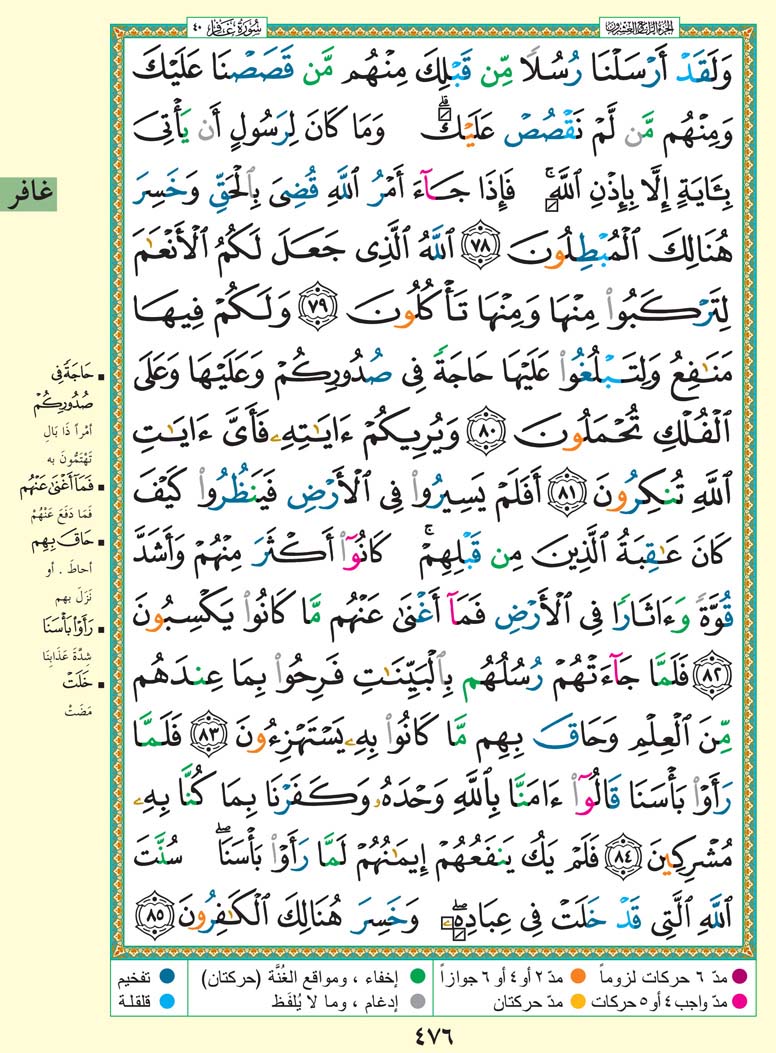 سُورَةُ غَافِرٍ ٤٠
الجزء الرابع والعشرون
وَلَقَدْ أَرْسَلْنَا رُسُلًا مِّن قَبْلِكَ مِنْهُم مَّن قَصَصْنَا عَلَيْكَ
وَمِنْهُم مَّن لَّمْ نَقْصُصْ عَلَيْكَ ۗ وَمَا كَانَ لِرَسُولٍ أَن يَأْتِىَ
بِـَٔايَةٍ إِلَّا بِإِذْنِ ٱللَّهِ ۚ فَإِذَا جَآءَ أَمْرُ ٱللَّهِ قُضِىَ بِٱلْحَقِّ وَخَسِرَ
هُنَالِكَ ٱلْمُبْطِلُونَ ٧٨ ٱللَّهُ ٱلَّذِى جَعَلَ لَكُمُ ٱلْأَنْعَٰمَ
لِتَرْكَبُوا۟ مِنْهَا وَمِنْهَا تَأْكُلُونَ ٧٩ وَلَكُمْ فِيهَا
مَنَٰفِعُ وَلِتَبْلُغُوا۟ عَلَيْهَا حَاجَةً فِى صُدُورِكُمْ وَعَلَيْهَا وَعَلَى
ٱلْفُلْكِ تُحْمَلُونَ ٨٠ وَيُرِيكُمْ ءَايَٰتِهِۦ فَأَىَّ ءَايَٰتِ
ٱللَّهِ تُنكِرُونَ ٨١ أَفَلَمْ يَسِيرُوا۟ فِى ٱلْأَرْضِ فَيَنظُرُوا۟ كَيْفَ
كَانَ عَٰقِبَةُ ٱلَّذِينَ مِن قَبْلِهِمْ ۚ كَانُوٓا۟ أَكْثَرَ مِنْهُمْ وَأَشَدَّ
قُوَّةً وَءَاثَارًا فِى ٱلْأَرْضِ فَمَآ أَغْنَىٰ عَنْهُم مَّا كَانُوا۟ يَكْسِبُونَ
٨٢ فَلَمَّا جَآءَتْهُمْ رُسُلُهُم بِٱلْبَيِّنَٰتِ فَرِحُوا۟ بِمَا عِندَهُم
مِّنَ ٱلْعِلْمِ وَحَاقَ بِهِم مَّا كَانُوا۟ بِهِۦ يَسْتَهْزِءُونَ ٨٣ فَلَمَّا
رَأَوْا۟ بَأْسَنَا قَالُوٓا۟ ءَامَنَّا بِٱللَّهِ وَحْدَهُۥ وَكَفَرْنَا بِمَا كُنَّا بِهِۦ
مُشْرِكِينَ ٨٤ فَلَمْ يَكُ يَنفَعُهُمْ إِيمَٰنُهُمْ لَمَّا رَأَوْا۟ بَأْسَنَا ۖ سُنَّتَ
ٱللَّهِ ٱلَّتِى قَدْ خَلَتْ فِى عِبَادِهِۦ ۖ وَخَسِرَ هُنَالِكَ ٱلْكَٰفِرُونَ ٨٥
غافر
حَاجَةً فِى
صُدُورِكُمْ
أمْراً ذَا بَالٍ
تَهْتَمُّونَ به
فَمَآ أَغْنَىٰ عَنْهُم
فَمَا دَفَعَ عَنْهُمْ
حَاقَ بِهِم
أحاطَ . أو
نَزَلَ بهم
رَأَوْا۟ بَأْسَنَا
شِدَّةَ عَذَابِنَا
خَلَتْ
مَضَتْ
مدّ ٦ حركات لزوماً
مدّ ٢ أو ٤ أو ٦ جوازاً
إخفاء ، ومواقع الغُنَّة (حركتان)
تفخيم
مدّ واجب ٤ أو ٥ حركات
مدّ حركتان
إدغام ، وما لا يُلفَظ
قلقلة
٤٧٦